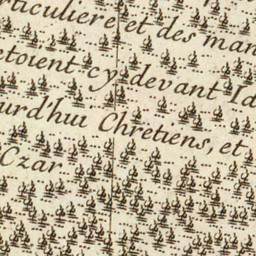 rticuliere et des man
etoient cy devant Id
urd'hui Chretiens, et
Czar